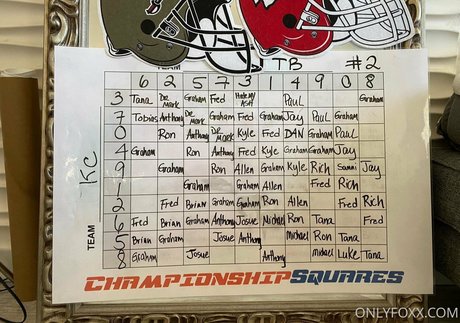 TEAM TB #2
6 2 5 7 3 1 4 9 0 8
3 Tana DeMark Graham Fred Paul Graham
7 Tobias Anthony DeMark Graham Fred Graham Jay Paul Graham
0 Ron Anthony DeMark Kyle Fred DAN Graham Paul
4 Graham Ron Anthony Fred Kyle Graham Graham Jay
9 Graham Ron Allen Graham Kyle Rich Sammi Jay
1 Graham Graham Allen Fred Rich
2 Fred Brian Graham Graham Fred Rich
6 Fred Brian Graham Anthony Josue Michael Ron Tana Fred
5 Brian Graham Josue Anthony Michael Ron Tana
8 Graham Josue Anthony michael Luke Tana
TEAM KC
CHAMPIONSHIPSQUARES
ONLYFOXX.COM